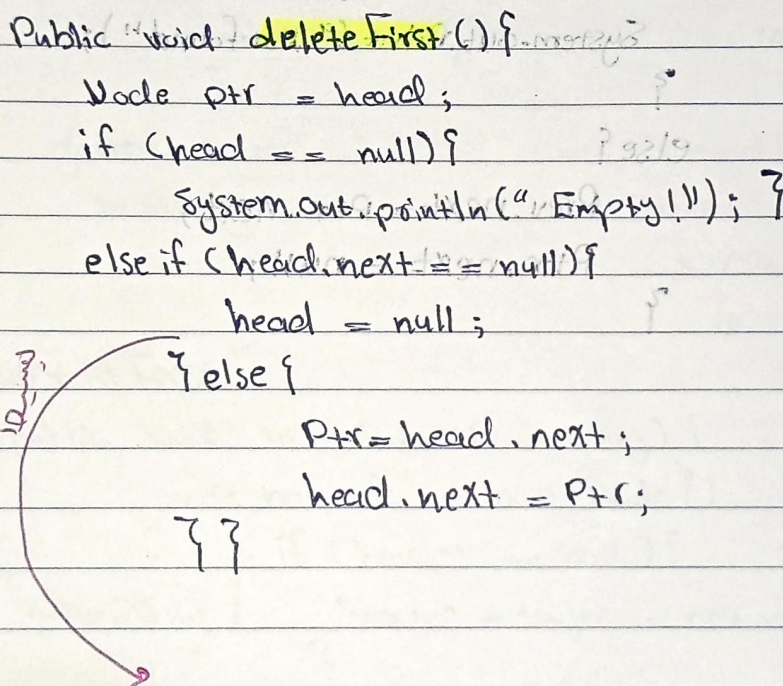 Public void deleteFirst(){
Node ptr = head;
if (head == null){
System.out.println("Empty!"); }
else if (head.next == null){
head = null;
} else {
Ptr = head.next;
head.next = Ptr;
} }